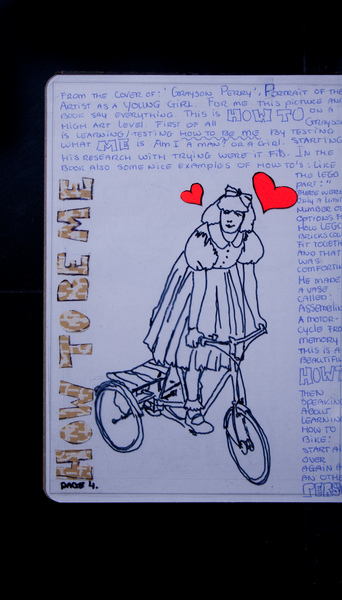 FROM THE COVER OF: 'GRAYSON PERRY', PORTRAIT OF THE
ARTIST AS A YOUNG GIRL. FOR ME THIS PICTURE AND
BOOK SAY EVERYTHING. THIS IS HOW TO ON A
HIGH ART LEVEL. FIRST OF ALL GRAYSON
IS LEARNING/TESTING HOW TO BE ME BY TESTING
WHAT ME IS. AM I A MAN? OR A GIRL. STARTING
HIS RESEARCH WITH TRYING WERE IT FIB. IN THE
BOOK ALSO SOME NICE EXAMPLES OF HOW TO'S: LIKE
THE LEGO
PART:"
THERE WERE
ONLY A LIMITED
NUMBER OF
OPTIONS FOR
HOW LEGO
BRICKS COULD
FIT TOGETHER
AND THAT
WAS
COMFORTING
HE MADE
A VASE
CALLED:
ASSEMBLING
A MOTOR-
CYCLE FROM
MEMORY
THIS IS A
BEAUTIFUL
HOW T
THEN
SPEAKING
ABOUT
LEARNING
HOW TO
BIKE:
START AL
OVER
AGAIN A
AN OTHE
PERSO
HOW TO BE ME
PAGE 4.